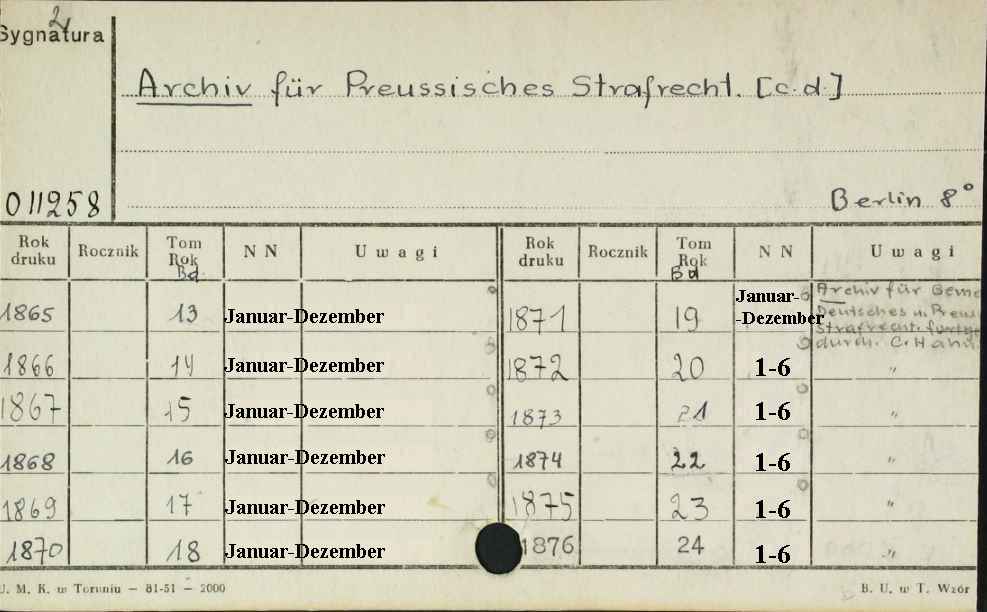 2
Sygnatura
Archiv für Preussisches Strafrecht. [c.d.]
011258
Berlin 8°
Rok druku Rocznik Tom Rok Bd. N N Uwagi Rok druku Rocznik Tom Rok Bd N N Uwagi
1865 13 Januar-Dezember 1871 19 Januar- -Dezember Archiv für Deutsches u. Strafrecht. durch C.
1866 14 Januar-Dezember 1872 20 1-6 "
1867 15 Januar-Dezember 1873 21 1-6 "
1868 16 Januar-Dezember 1874 22 1-6 "
1869 17 Januar-Dezember 1875 23 1-6 "
1870 18 Januar-Dezember 1876 24 1-6 "
U. M. K. w Toruniu — 81-51 — 2000 B. U. w T. Wzór